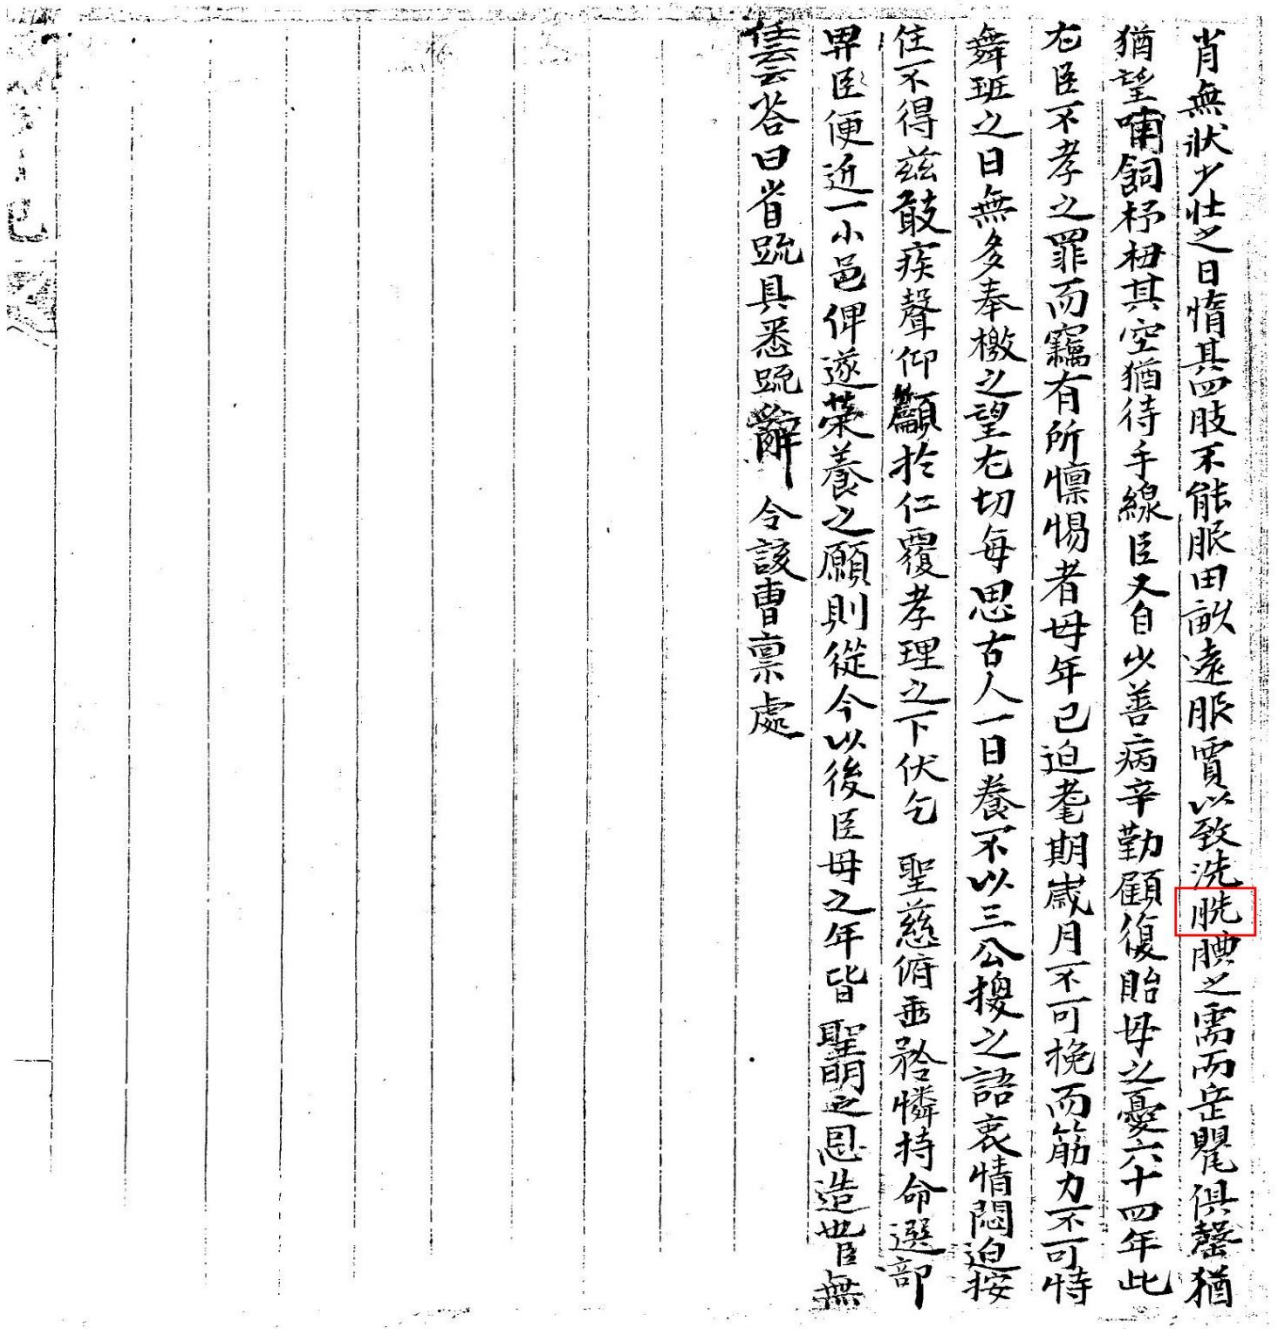 肖無狀少壯之日惰其四肢不能服田畝遠服賈以致洗洗腆之需而缶甖俱罄猶
猶望哺飼杼柚其空猶待手線臣又自少善病辛勤顧復貽母之憂六十四年此
尤臣不孝之罪而竊有所懍惕者母年已迫耄期歲月不可挽而筋力不可恃
舞班之日無多奉檄之望尤切每思古人一日養不以三公換之語衷情悶迫按
住不得玆敢疾聲仰籲於仁覆孝理之下伏乞 聖慈俯垂矜憐特命選部
畀臣便近一小邑俾遂榮養之願則從今以後臣母之年皆 聖明之恩造也臣無
任云云答曰省疏具悉疏辭 令該曹稟處